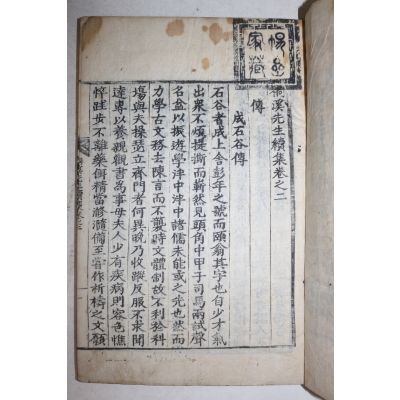 溪先生續集卷之二
傳
成石谷傳
石谷者成上舍彭年之號而頤翁其字也自少才氣
出衆不煩提撕而嶄然見頭角中甲子司馬兩試聲
名益以振遊學泮中泮中諸儒未能或之先也然而
力學古文務去陳言而不襲時文體制故不利於科
場與夫操瑟立齊門者何異晚乃收蹤反服不求聞
達專以養觀書爲事母夫人少有疾病則容色憔
悴跬步不離藥餌精當滫瀡備至嘗作祈禱之文願
家藏